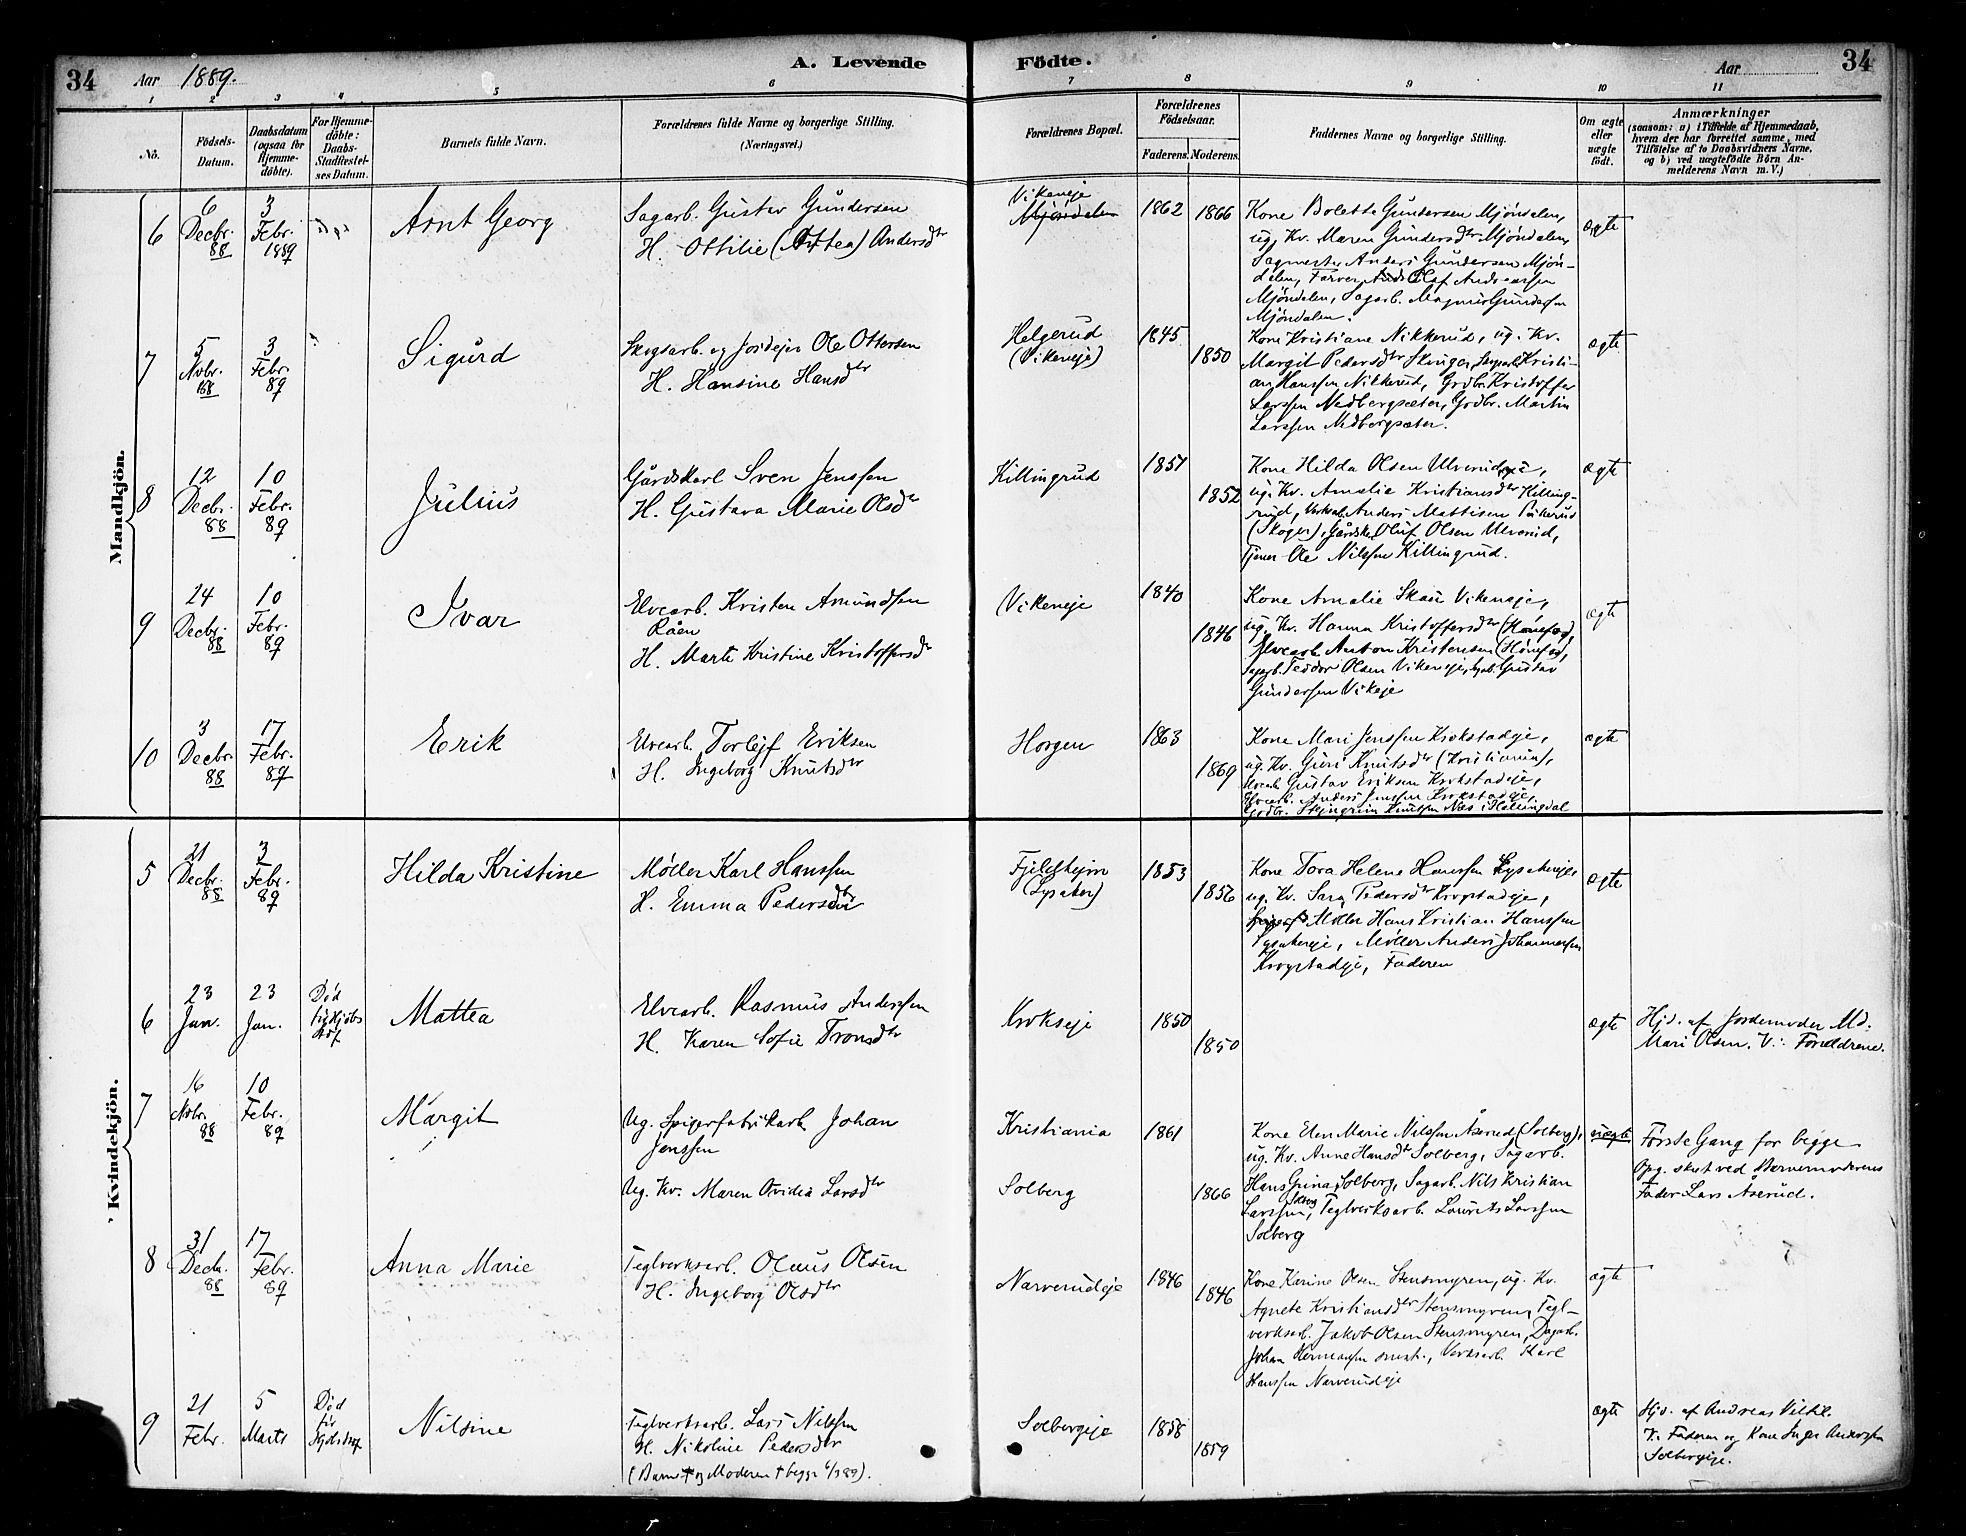 34 Aar 1889. A. Levende Födte. Aar 34
1 2 3 4 5 6 7 8 9 10 11
No.
Födsels-Datum.
Daabsdatum (ogsaa for Hjemme-döbte).
For Hjemme-döbte: Daabs-Stadfæstel-ses Datum.
Barnets fulde Navn.
Forældrenes fulde Navne og borgerlige Stilling.
(Næringsvei.)
Forældrenes Bopæl.
Forældrenes Födselsaar.
Faderens. Moderens.
Faddernes Navne og borgerlige Stilling.
Om ægte eller uægte födt.
Anmærkninger
(saasom: a) i Tilfælde af Hjemmedaab,
hvem der har forrettet samme, med
Tilföielse af to Daabsvidners Navne,
og b) ved uægtefödte Börn An-
melderens Navn m. V.)
Mandkjön.
6
6 Decbr. 88
3 Febr. 1889
Arnt Georg
Sagarb. Gustav Gundersen
H. Ottilie (Attea) Andersdtr
Vikeneje
Mjöndalen
1862
1866
Kone Bolette Gundersen Mjöndalen,
ug. Kv. Maren Gundersdtr Mjöndalen,
Sagmester Anders Gundersen Mjön-
dalen, Farver Olaf Andreassen
Mjöndalen, Sagarb. Magnus Gundersen
Mjöndalen.
ægte
7
5 Novbr. 88
3 Febr. 89
Sigurd
Skogsarb. og Jordejer Ole Ottersen
H. Hansine Hansdtr
Helgerud
(Vikeneje)
1845
1850
Kone Kristiane Nikkerud, ug. Kv.
Margit Pedersdtr Skuger, Kristi-
an Hanssen Nikkerud, Grdbr. Kristoffer
Larssen Nedbergsæter, Grdbr. Martin
Larssen Nedbergsæter.
ægte
8
12 Decbr. 88
10 Febr. 89
Julius
Gårdskarl Sven Jenssen
H. Gustava Marie Olsdtr
Killingrud
1851
1852
Kone Hilda Olsen Ulverudeje,
ug. Kv. Amalie Kristiansdtr Killing-
rud, Anders Mattisen
(Skoger), Gårdsk. Oluf Olsen Ulverud,
Tjener Ole Nilssen Killingrud.
ægte
9
24 Decbr. 88
10 Febr. 89
Ivar
Elvearb. Kristen Amundsen
Råen
H. Marte Kristine Kristoffersdtr
Vikeneje
1840
1846
Kone Amalie Skau Vikeneje,
ug. Kv. Hanna Kristoffersdtr (Hönefos),
Elvearb. Anton Kristensen (Hönefos),
Sagarb. Teodor Olsen Vikeneje, Sagarb. Gustav
Gundersen Vikeje
ægte
10
3 Decbr. 88
17 Febr. 89
Erik
Elvearb. Torlejf Eriksen
H. Ingeborg Knutsdtr
Horgen
1863
1869
Kone Mari Jenssen Krokstadeje,
ug. Kv. Guri Knutsdtr (Kristiania),
Elvearb. Gustav Eriksen Krokstadeje,
Elvearb. Anders Jenssen Krokstadeje,
Grdbr. Skjngrim Knutssen Næs i Hallingdal
ægte
Kvindekjön.
5
21 Decbr. 88
3 Febr. 89
Hilda Kristine
Møller Karl Hanssen
H. Emma Pedersdtr
Fjeldhejm
(Lysaker)
1853
1856
Kone Tora Helene Hanssen Lysakereje,
ug. Kv. Sara Pedersdtr Krogstadeje,
Møller Hans Kristian Hanssen
Lysakereje, Møller Anders Johannessen
Krogstadeje, Faderen
ægte
6
23 Jan.
23 Jan.
Död
Mattea
Elvearb. Rasmus Anderssen
H. Karen Sofie Tronsdtr
Krokseje
1850
1850
ægte
Hjd. af Jordemoder Md.
Mari Olsen. V.: Forældrene.
7
16 Novbr. 88
10 Febr. 89
Margit
Ug. Spigerfabrikarb. Johan
Jenssen
Ug. Kv. Maren Ovidia Larsdtr
Kristiania
Solberg
1861
1866
Kone Elen Marie Nilssen Åserud (Solberg),
ug. Kv. Anne Hansdtr Solberg, Sagarb.
Hans Grina Solberg, Sagarb. Nils Kristian
Larssen Solberg, Teglverksarb. Laurits Larssen
Solberg
uægte
Förste Gang for begge
Opg. sket ved Barnemoderens
Fader Lars Åserud.
8
31 Decbr. 88
17 Febr. 89
Anna Marie
Teglverksarb. Olaus Olsen
H. Ingeborg Olsdtr
Narverudeje
1846
1846
Kone Karine Olsen Stensmyren, ug. Kv.
Agnete Kristiansdtr Stensmyren, Tegl-
verksarb. Jakob Olsen Stensmyren, Dagarb.
Johan Hermansen, Verksarb. Karl
Hanssen Narverudeje
ægte
9
21 Febr.
5 Marts
Död
Nilsine
Teglverksarb. Lars Nilssen
H. Nikoline Pedersdtr
(Barn † og Moderen † begge 6/3 89).
Solbergeje
1858
1859
ægte
Hjd. af Andreas
V: Faderen og Kone Inger Anderssen
Solbergeje.